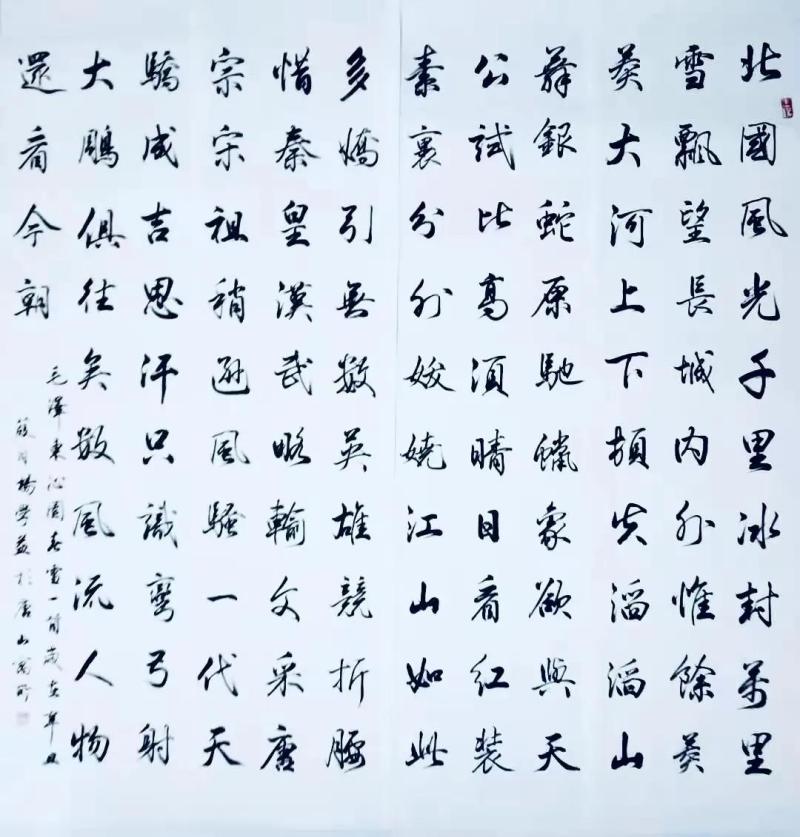 北國風光千里冰封萬里
雪飄望長城內外惟餘莫
莽大河上下頓失滔滔山
舞銀蛇原馳蠟象欲與天
公試比高須晴日看紅裝
素裹分外妖嬈江山如此
多嬌引無數英雄競折腰
惜秦皇漢武略輸文采唐
宗宋祖稍遜風騷一代天
驕成吉思汗只識彎弓射
大鵬俱往矣數風流人物
還看今朝
毛澤東沁園春雪一首歲在辛丑
月楊學益於唐山寓所